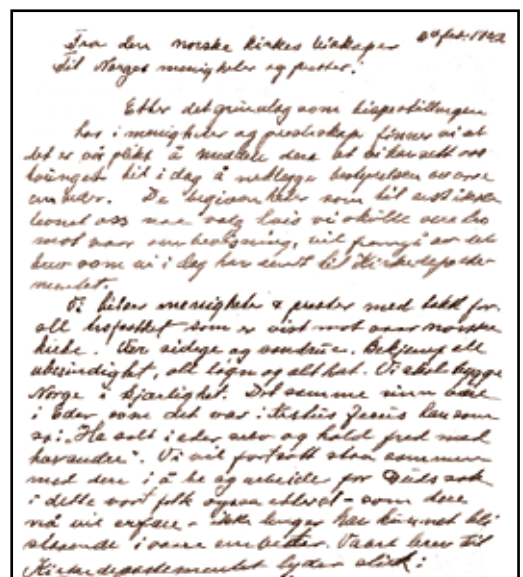 Fra den norske kirkes biskoper 24 feb. 1942
Til Norges menigheter og prester.
Etter det grunnlag som bispestillingen
har i menigheter og presteskap finner vi at
det er vår plikt å meddele dere at vi har sett oss
tvunget til i dag å nedlegge bestyrelsen av våre
embeder. De begivenheter som til sist ikke
levnet oss noe valg hvis vi skulle være tro
mot vaar overbevisning, vil fremgå av det
brev som vi i dag har sendt til Kirkedeparte-
mentet.
Vi hilser menigheter & prester med takk for
all trofasthet som er vist mot vaar norske
kirke. Vær sidige og sanddrue. Bekjemp all
ubesindighet, all løgn og alt hat. Vi skal bygge
Norge i kjærlighet. Det samme sinn være
i Eder som det var i Kristus Jesus han som
sa: "Ha salt i eder selv og hold fred med
hverandre". Vi vil fortsatt staa sammen
med dere i å be og arbeide for Guds sak
i dette vort folk ogsaa efter at - som dere
nå vil erfare - ikke lenger har kunnet bli
staaende i vaare embeder. Vaart brev til
Kirkedepartementet lyder slik: